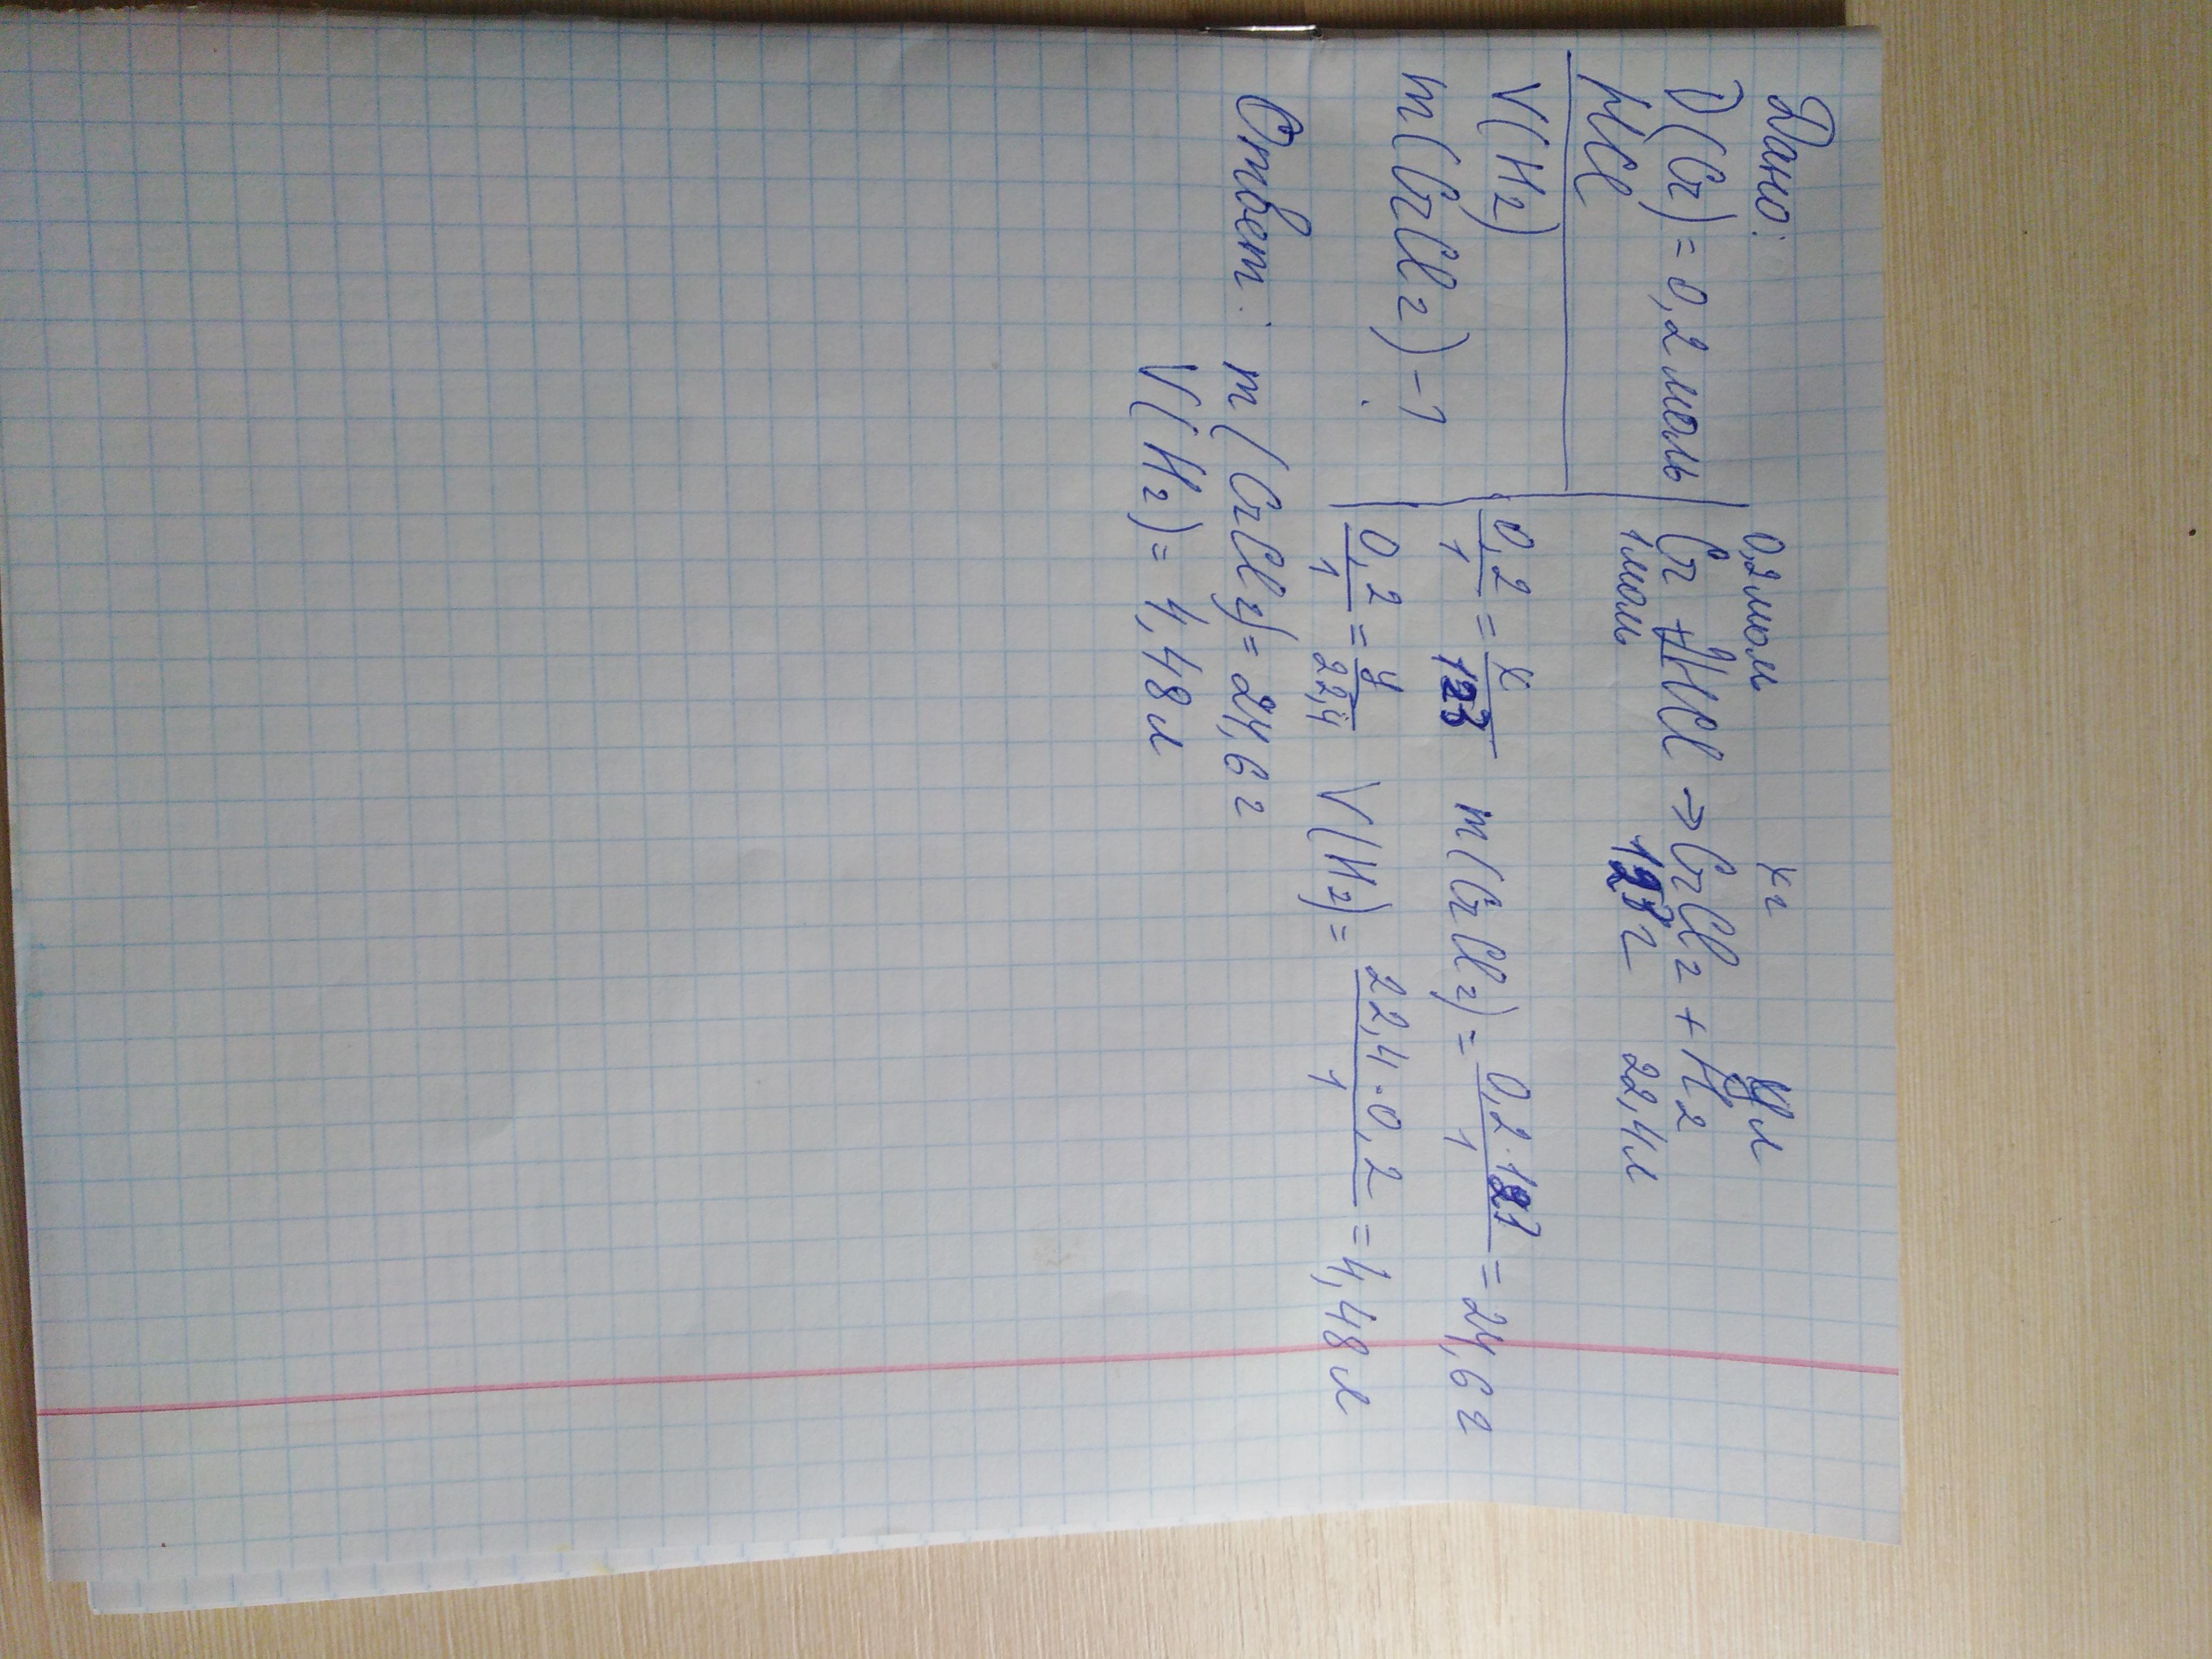 Дано:
ν(Cr) = 0,2 моль
HCl
V(H₂)
m(CrCl₂) - ?
0,2 моль xг yл
Cr + 2HCl → CrCl₂ + H₂
1 моль 123 г 22,4 л
0,2/1 = x/123 m(CrCl₂) = 0,2·123/1 = 24,6 г
0,2/1 = y/22,4 V(H₂) = 22,4·0,2/1 = 4,48 л
Ответ: m(CrCl₂) = 24,6 г
V(H₂) = 4,48 л